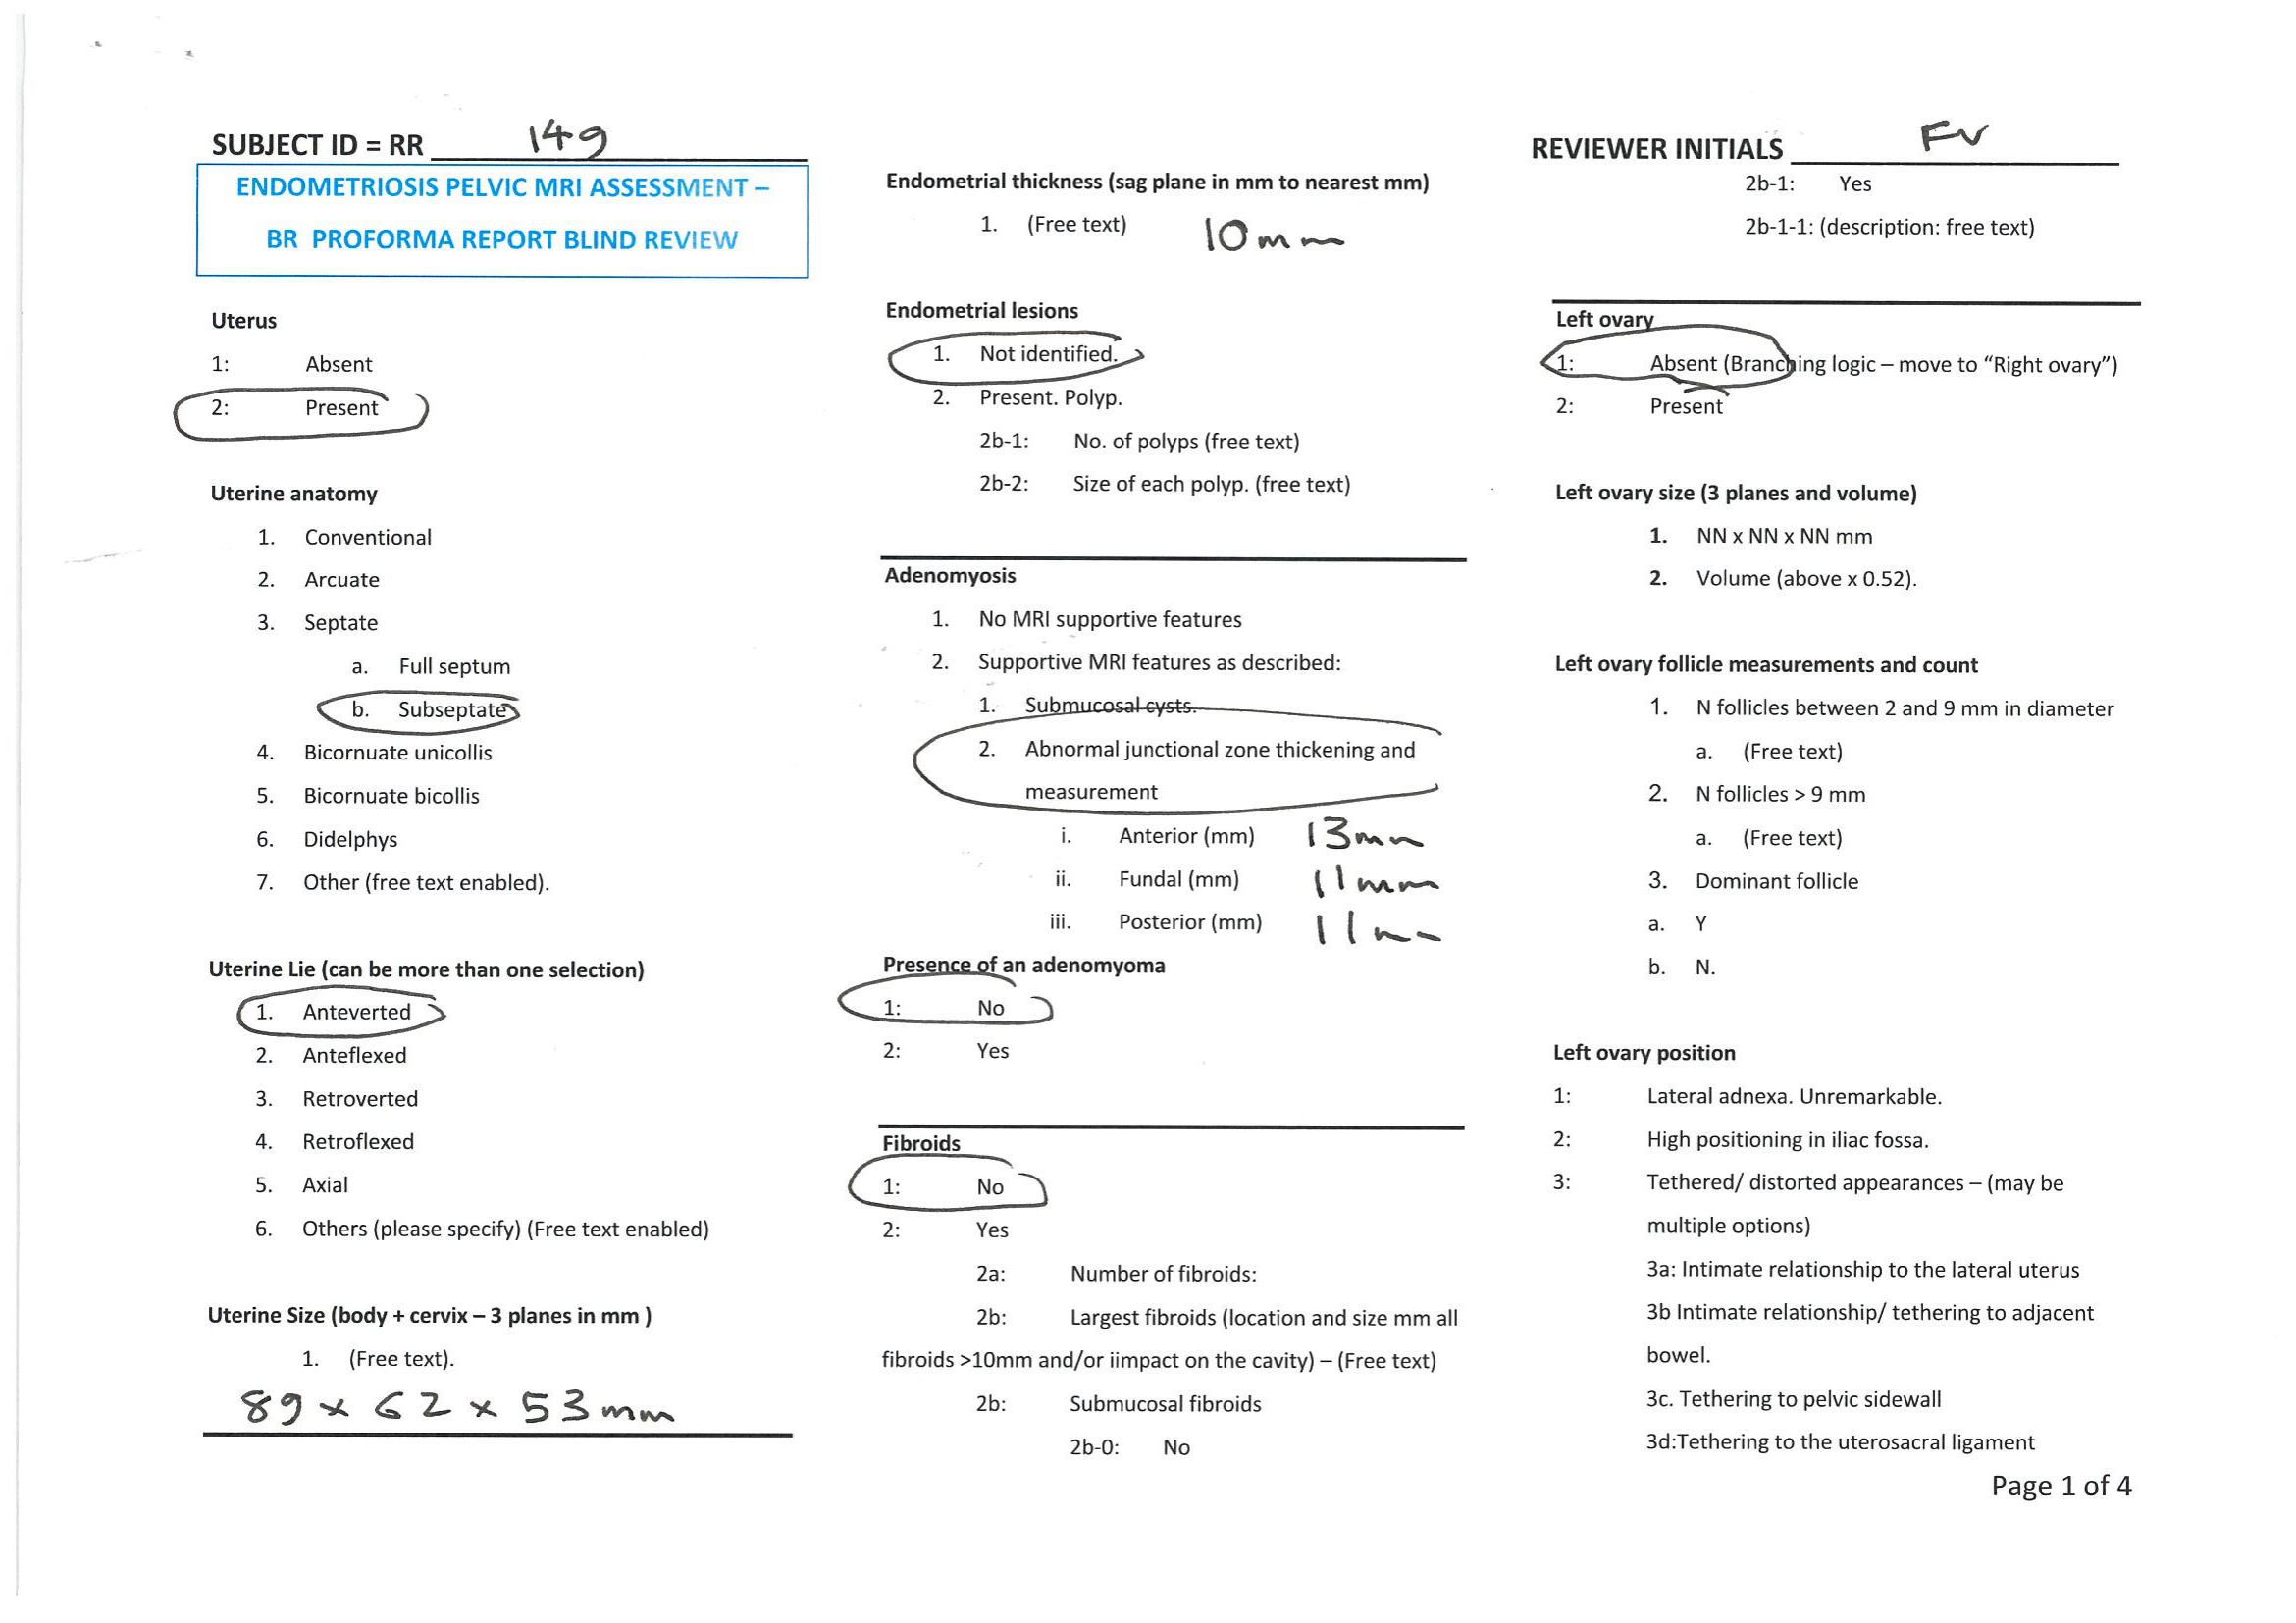 SUBJECT ID = RR 149
ENDOMETRIOSIS PELVIC MRI ASSESSMENT –
BR PROFORMA REPORT BLIND REVIEW
Uterus
1: Absent
2: Present
Uterine anatomy
1. Conventional
2. Arcuate
3. Septate
a. Full septum
b. Subseptate
4. Bicornuate unicollis
5. Bicornuate bicollis
6. Didelphys
7. Other (free text enabled).
Uterine Lie (can be more than one selection)
1. Anteverted
2. Anteflexed
3. Retroverted
4. Retroflexed
5. Axial
6. Others (please specify) (Free text enabled)
Uterine Size (body + cervix – 3 planes in mm )
1. (Free text).
89 x 62 x 53mm
Endometrial thickness (sag plane in mm to nearest mm)
1. (Free text) 10mm
Endometrial lesions
1. Not identified.
2. Present. Polyp.
2b-1: No. of polyps (free text)
2b-2: Size of each polyp. (free text)
Adenomyosis
1. No MRI supportive features
2. Supportive MRI features as described:
1. Submucosal cysts.
2. Abnormal junctional zone thickening and
measurement
i. Anterior (mm) 13mm
ii. Fundal (mm) 11mm
iii. Posterior (mm) 11mm
Presence of an adenomyoma
1: No
2: Yes
Fibroids
1: No
2: Yes
2a: Number of fibroids:
2b: Largest fibroids (location and size mm all
fibroids >10mm and/or iimpact on the cavity) – (Free text)
2b: Submucosal fibroids
2b-0: No
REVIEWER INITIALS FV
2b-1: Yes
2b-1-1: (description: free text)
Left ovary
1: Absent (Branching logic – move to “Right ovary”)
2: Present
Left ovary size (3 planes and volume)
1. NN x NN x NN mm
2. Volume (above x 0.52).
Left ovary follicle measurements and count
1. N follicles between 2 and 9 mm in diameter
a. (Free text)
2. N follicles > 9 mm
a. (Free text)
3. Dominant follicle
a. Y
b. N.
Left ovary position
1: Lateral adnexa. Unremarkable.
2: High positioning in iliac fossa.
3: Tethered/ distorted appearances – (may be
multiple options)
3a: Intimate relationship to the lateral uterus
3b Intimate relationship/ tethering to adjacent
bowel.
3c. Tethering to pelvic sidewall
3d:Tethering to the uterosacral ligament
Page 1 of 4